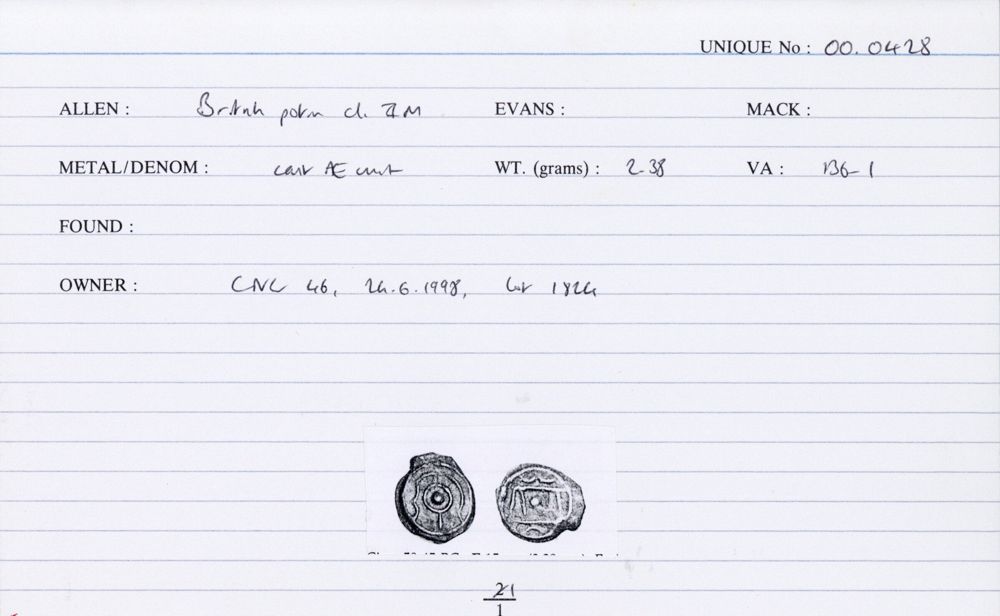 UNIQUE No : 00.0428
ALLEN : British potin cl. II M EVANS : MACK :
METAL/DENOM : cast Æ unit WT. (grams) : 2.38 VA : 136-1
FOUND :
OWNER : CNG 46, 24.6.1998, lot 1824
21
1